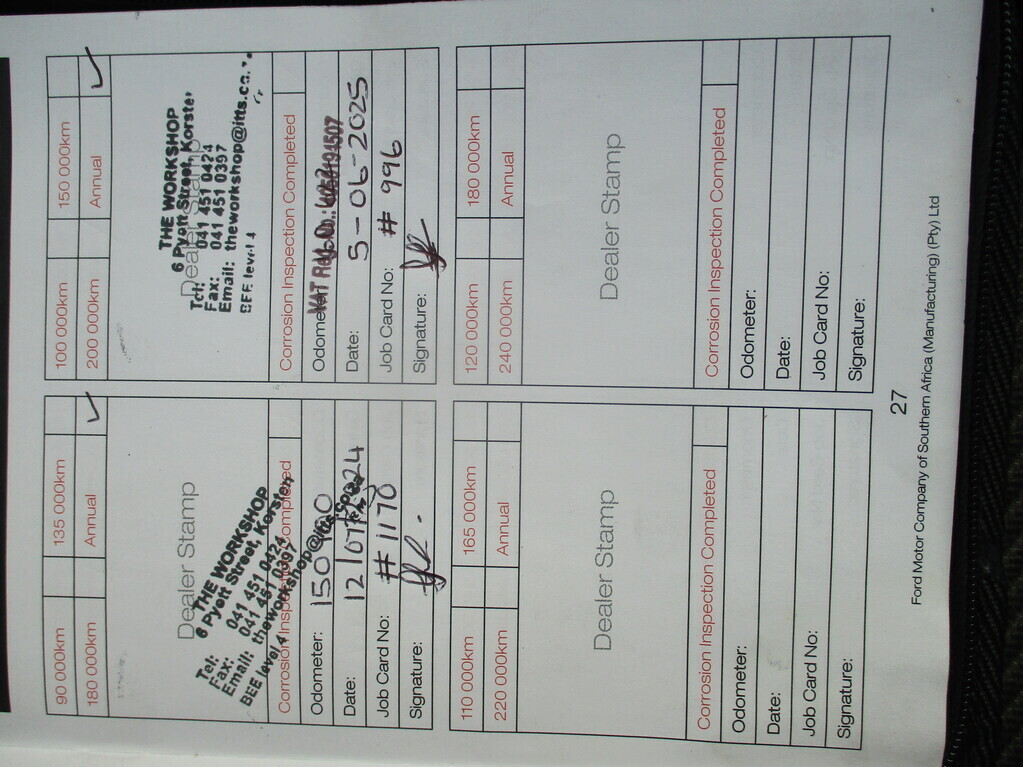 90 000km 135 000km
180 000km Annual ✓
Dealer Stamp
THE WORKSHOP
6 Pyott Street, Korsten
Tel: 041 451 0424
Fax: 041 451 0397
Email: theworkshop@itts.co.za
BEE level 4
Corrosion Inspection Completed
Odometer: 150
Date: 12/07/2024
Job Card No: # 1170
Signature:
100 000km 150 000km
200 000km Annual ✓
Dealer Stamp
THE WORKSHOP
6 Pyott Street, Korsten
Tel: 041 451 0424
Fax: 041 451 0397
Email: theworkshop@itts.co.
BEE level 4
Corrosion Inspection Completed
Odometer: VAT Reg. No.:
Date: 5-06-2025
Job Card No: # 996
Signature:
110 000km 165 000km
220 000km Annual
Dealer Stamp
Corrosion Inspection Completed
Odometer:
Date:
Job Card No:
Signature:
120 000km 180 000km
240 000km Annual
Dealer Stamp
Corrosion Inspection Completed
Odometer:
Date:
Job Card No:
Signature:
27
Ford Motor Company of Southern Africa (Manufacturing) (Pty) Ltd